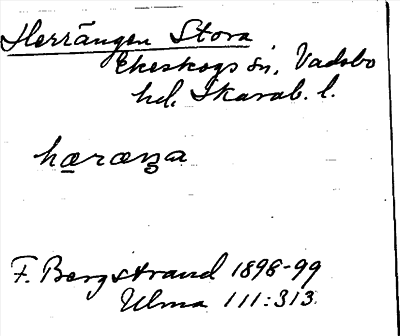 Herrängen Stora
Ekeskogs sn, Vadsbo
hd, Skarab. l.
hæræŋa
F. Bergstrand 1898-99
Ulma 111:313.